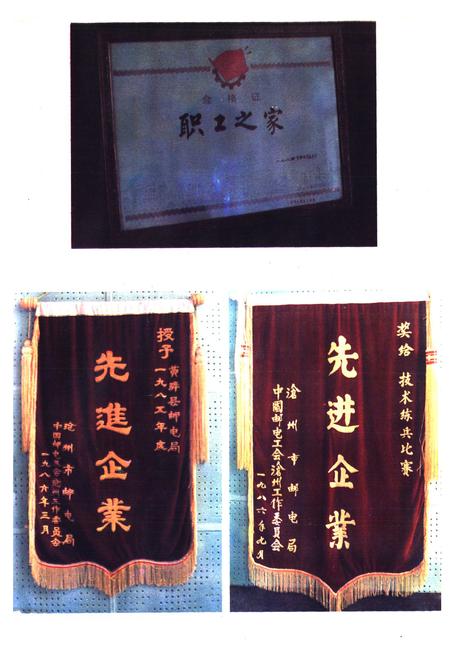 合格证
职工之家
授予
黄骅县邮电局
一九八五年度
先進企業
沧州市邮电局
中国邮电工会沧州工作委员会
一九八六年三月
奖给 技术练兵比赛
先进企業
沧州市邮电局
中國邮电工会沧州工作委员会
一九八六年九月